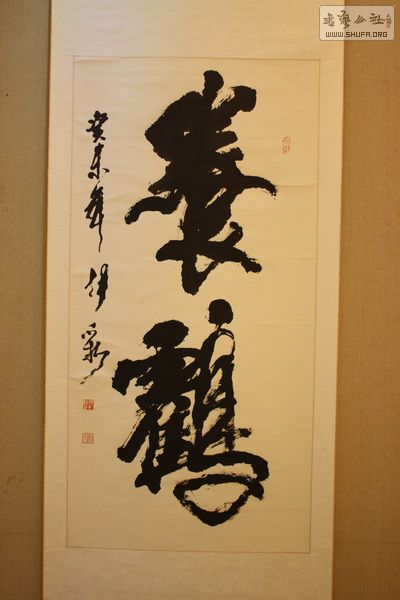 養鶴
癸未年
書藝公社
WWW.SHUFA.ORG